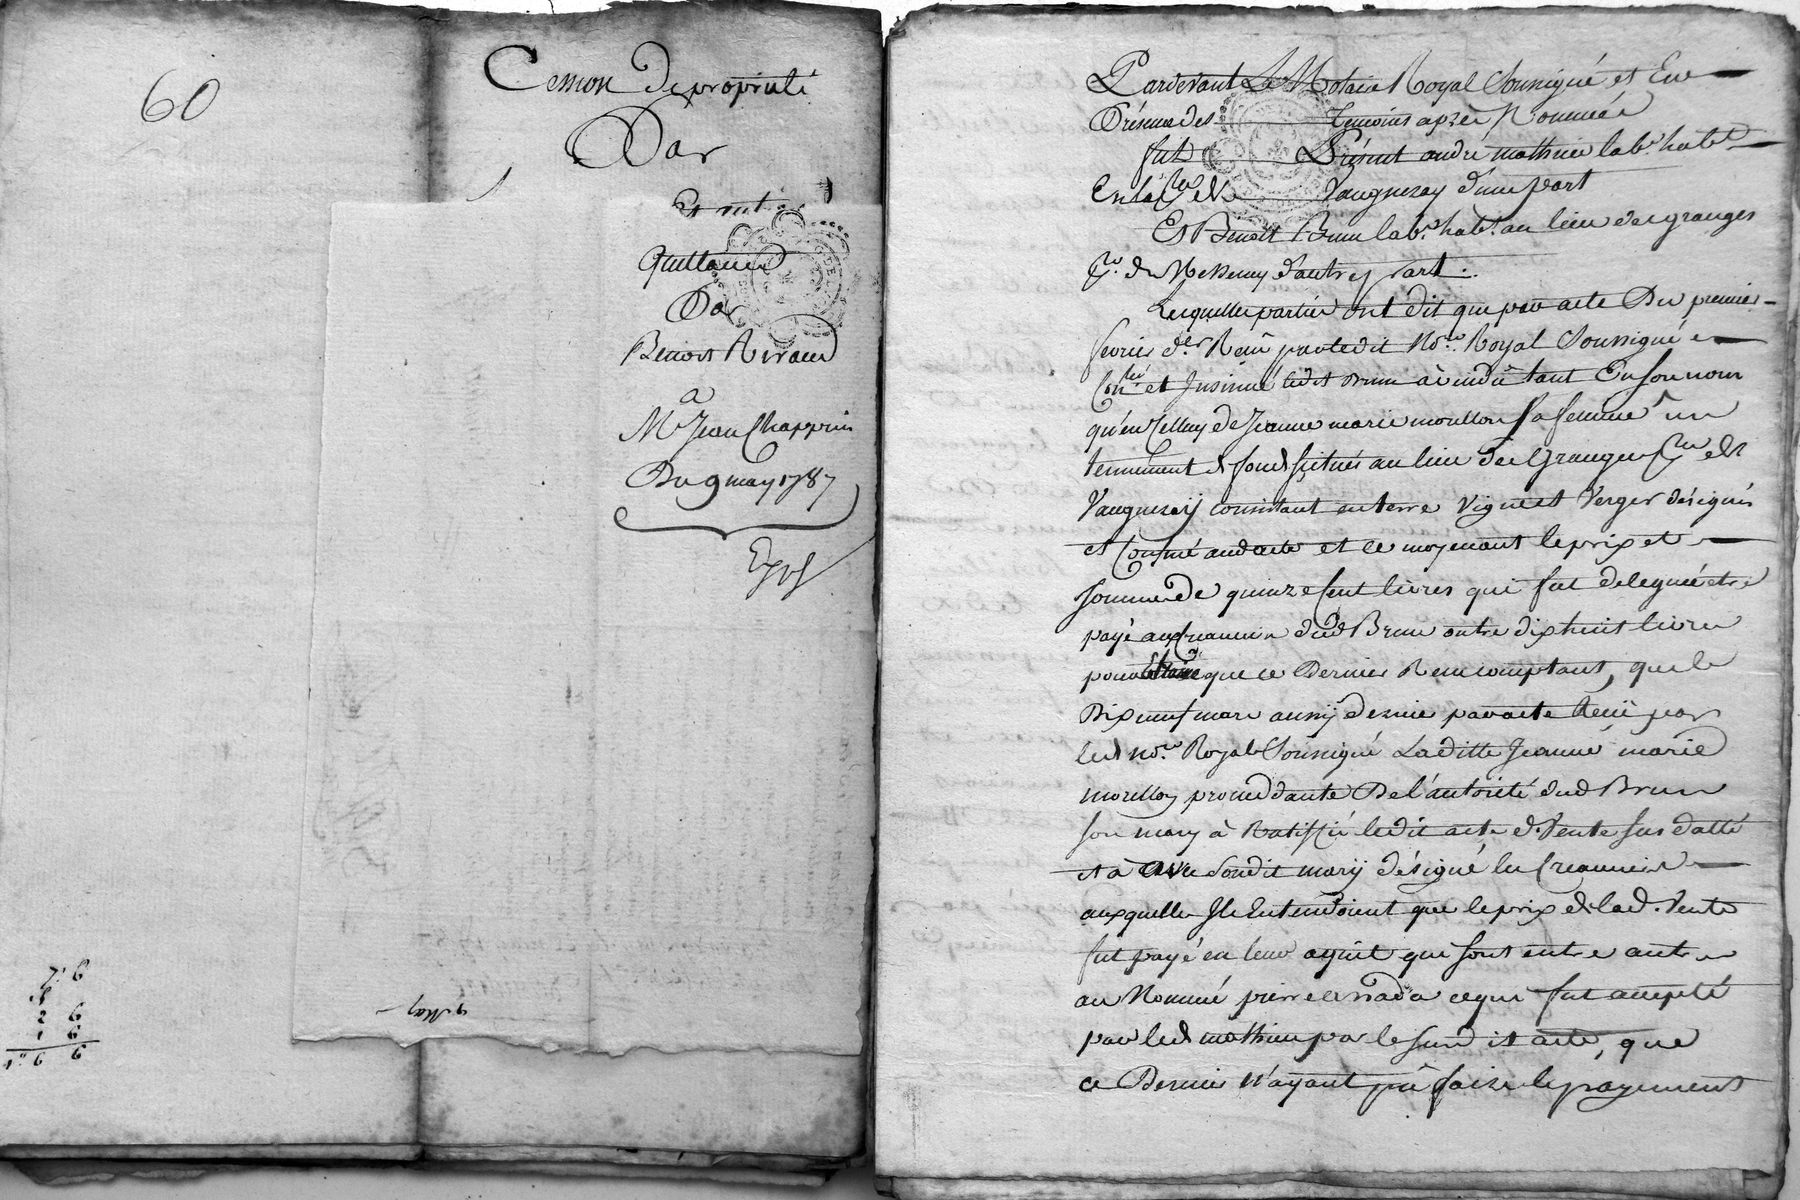 60
Cession De propriété
Par
Guillaume
Par
Benoit Rivaud
a
Mr Jean Chapprin
Du 9 may 1787
Expd
9 May
Pardevant Le Notaire Royal Soussigné et En
Présence des Temoins après Nommés
fut Présent andré mathieu labr. habt.
En la psse de Vaugneray d'une part
Et Benoit Brun labr. habt. au lieu des granges
psse. de Messemy d'autre part.
Lesquelles parties ont dit que par acte Du premier
fevrier der. Reçu par ledit Nore. Royal Soussigné
Conlé et Insinué ledit Brun à vendu tant En son nom
qu'en Celluy de Jeanne marie moullon sa femme un
tennement de fonds situés au lieu des Granges psse de
Vaugneray consistant en terre Vigne et Verger désignés
et Confiné aud acte et ce moyenant le prix et
somme de quinze Cent livres qui fut deleguée etre
payé aux Creanciers dud Brun outre dix huit livres
pour que ce Dernier Reçu comptant, que le
Dix neuf mars aussy dernier par acte Reçu par
led nore. Royal Soussigné Laditte Jeanne marie
moullon proceddante De l'autorité dud Brun
son mary à Ratiffié ledit acte de Vente sus datté
et a avec sondit mary désigné les Creanciers
auxquelles Ils Entendoient que le prix de lad. Vente
fut payé en leur aquit qui sont entre autres
au Nommé pierre ce qui fut accepté
par led mathieu par le susdit acte, que
ce Dernier N'ayant pû faire le payement